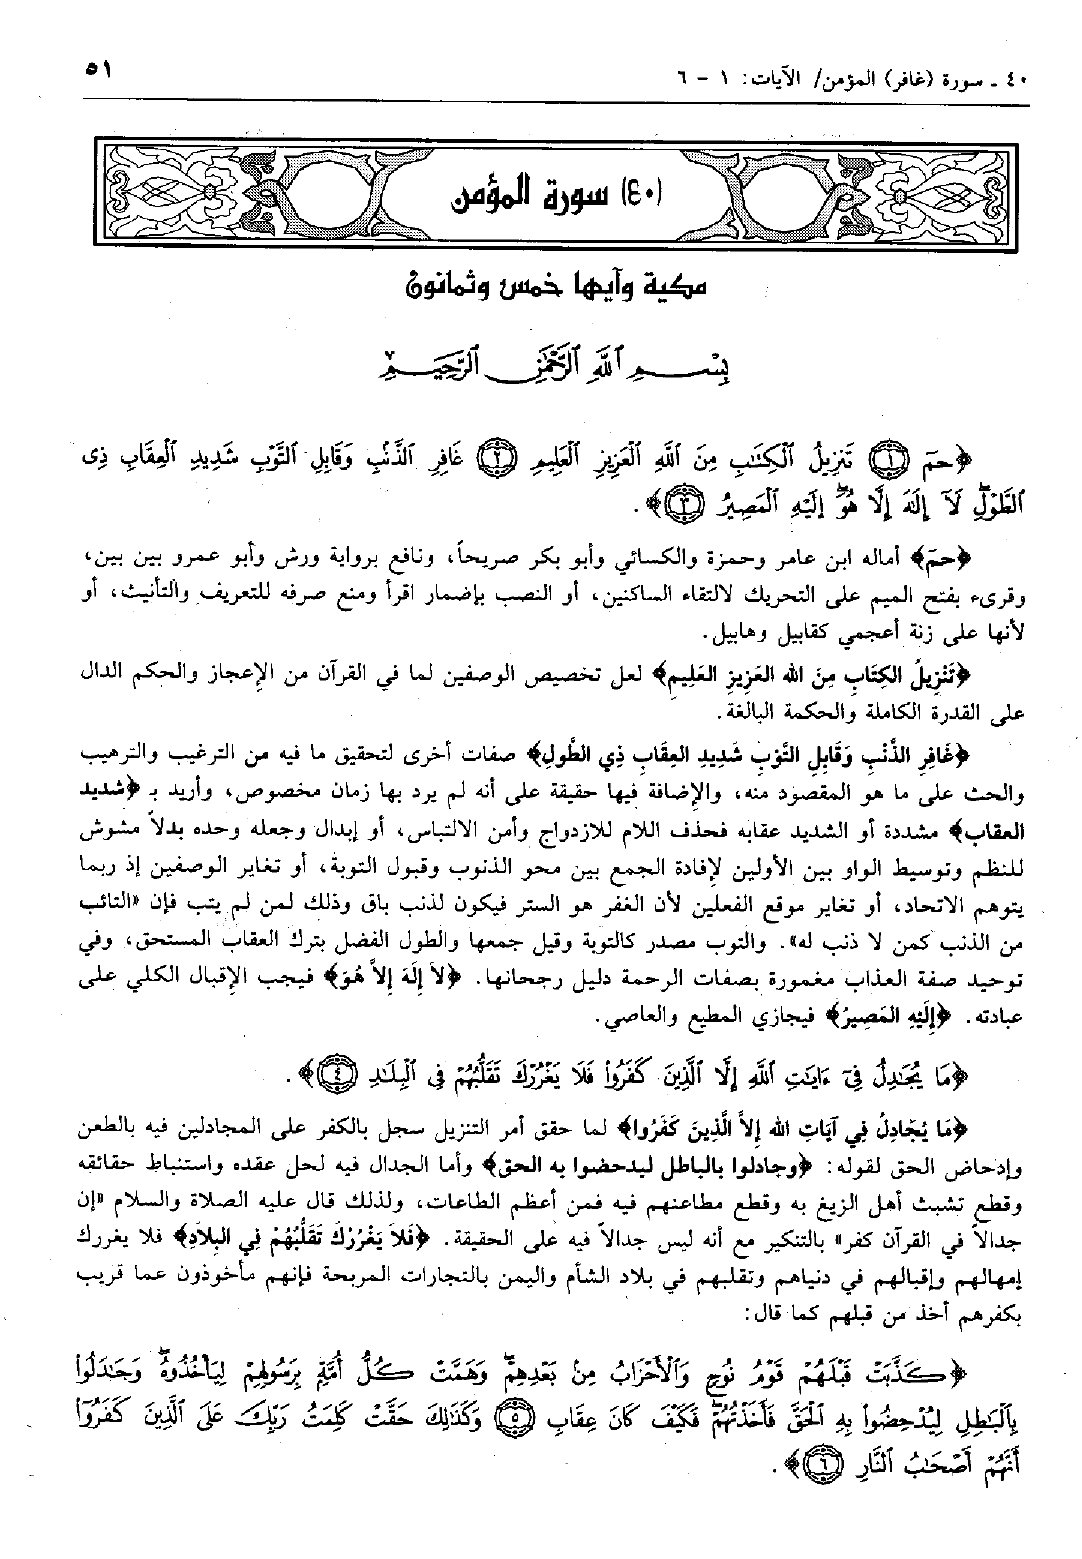 ٤٠ ـ سورة (غافر) المؤمن/ الآيات: ١ - ٦
٥١
(٤٠) سورة المؤمن
مكية وآيها خمس وثمانون
بِسْمِ ٱللَّهِ ٱلرَّحْمَٰنِ ٱلرَّحِيمِ
﴿حمٓ ١ تَنزِيلُ ٱلْكِتَٰبِ مِنَ ٱللَّهِ ٱلْعَزِيزِ ٱلْعَلِيمِ ٢ غَافِرِ ٱلذَّنۢبِ وَقَابِلِ ٱلتَّوْبِ شَدِيدِ ٱلْعِقَابِ ذِى
ٱلطَّوْلِۖ لَآ إِلَٰهَ إِلَّا هُوَۖ إِلَيْهِ ٱلْمَصِيرُ ٣﴾.
﴿حمٓ﴾ أماله ابن عامر وحمزة والكسائي وأبو بكر صريحاً، ونافع برواية ورش وأبو عمرو بين بين،
وقرىء بفتح الميم على التحريك لالتقاء الساكنين، أو النصب بإضمار اقرأ ومنع صرفه للتعريف والتأنيث، أو
لأنها على زنة أعجمي كقابيل وهابيل.
﴿تَنْزِيلُ الكِتَابِ مِنَ الله العَزِيزِ العَلِيمِ﴾ لعل تخصيص الوصفين لما في القرآن من الإعجاز والحكم الدال
على القدرة الكاملة والحكمة البالغة.
﴿غَافِرِ الذَّنْبِ وَقَابِلِ التَّوْبِ شَدِيدِ العِقَابِ ذِي الطَّولِ﴾ صفات أخرى لتحقيق ما فيه من الترغيب والترهيب
والحث على ما هو المقصود منه، والإضافة فيها حقيقة على أنه لم يرد بها زمان مخصوص، وأريد بـ ﴿شديد
العقاب﴾ مشددة أو الشديد عقابه فحذف اللام للازدواج وأمن الالتباس، أو إبدال وجعله وحده بدلاً مشوش
للنظم وتوسيط الواو بين الأولين لإفادة الجمع بين محو الذنوب وقبول التوبة، أو تغاير الوصفين إذ ربما
يتوهم الاتحاد، أو تغاير موقع الفعلين لأن الغفر هو الستر فيكون لذنب باق وذلك لمن لم يتب فإن «التائب
من الذنب كمن لا ذنب له». والتوب مصدر كالتوبة وقيل جمعها والطول الفضل بترك العقاب المستحق، وفي
توحيد صفة العذاب مغمورة بصفات الرحمة دليل رجحانها. ﴿لاَ إِلَهَ إِلاَّ هُوَ﴾ فيجب الإقبال الكلي على
عبادته. ﴿إِلَيْهِ المَصِيرُ﴾ فيجازي المطيع والعاصي.
﴿مَا يُجَٰدِلُ فِىٓ ءَايَٰتِ ٱللَّهِ إِلَّا ٱلَّذِينَ كَفَرُوا۟ فَلَا يَغْرُرْكَ تَقَلُّبُهُمْ فِى ٱلْبِلَٰدِ ٤﴾.
﴿مَا يُجَادِلُ فِي آيَاتِ الله إِلاَّ الَّذِينَ كَفَرُوا﴾ لما حقق أمر التنزيل سجل بالكفر على المجادلين فيه بالطعن
وإدحاض الحق لقوله: ﴿وجادلوا بالباطل ليدحضوا به الحق﴾ وأما الجدال فيه لحل عقده واستنباط حقائقه
وقطع تشبث أهل الزيغ به وقطع مطاعنهم فيه فمن أعظم الطاعات، ولذلك قال عليه الصلاة والسلام «إن
جدالاً في القرآن كفر» بالتنكير مع أنه ليس جدالاً فيه على الحقيقة. ﴿فَلاَ يَغْرُرْكَ تَقَلُّبُهُمْ فِي البِلاَدِ﴾ فلا يغررك
إمهالهم وإقبالهم في دنياهم وتقلبهم في بلاد الشأم واليمن بالتجارات المربحة فإنهم مأخوذون عما قريب
بكفرهم أخذ من قبلهم كما قال:
﴿كَذَّبَتْ قَبْلَهُمْ قَوْمُ نُوحٍ وَٱلْأَحْزَابُ مِنۢ بَعْدِهِمْۖ وَهَمَّتْ كُلُّ أُمَّةٍۭ بِرَسُولِهِمْ لِيَأْخُذُوهُۖ وَجَٰدَلُوا۟
بِٱلْبَٰطِلِ لِيُدْحِضُوا۟ بِهِ ٱلْحَقَّ فَأَخَذْتُهُمْۖ فَكَيْفَ كَانَ عِقَابِ ٥ وَكَذَٰلِكَ حَقَّتْ كَلِمَتُ رَبِّكَ عَلَى ٱلَّذِينَ كَفَرُوٓا۟
أَنَّهُمْ أَصْحَٰبُ ٱلنَّارِ ٦﴾.